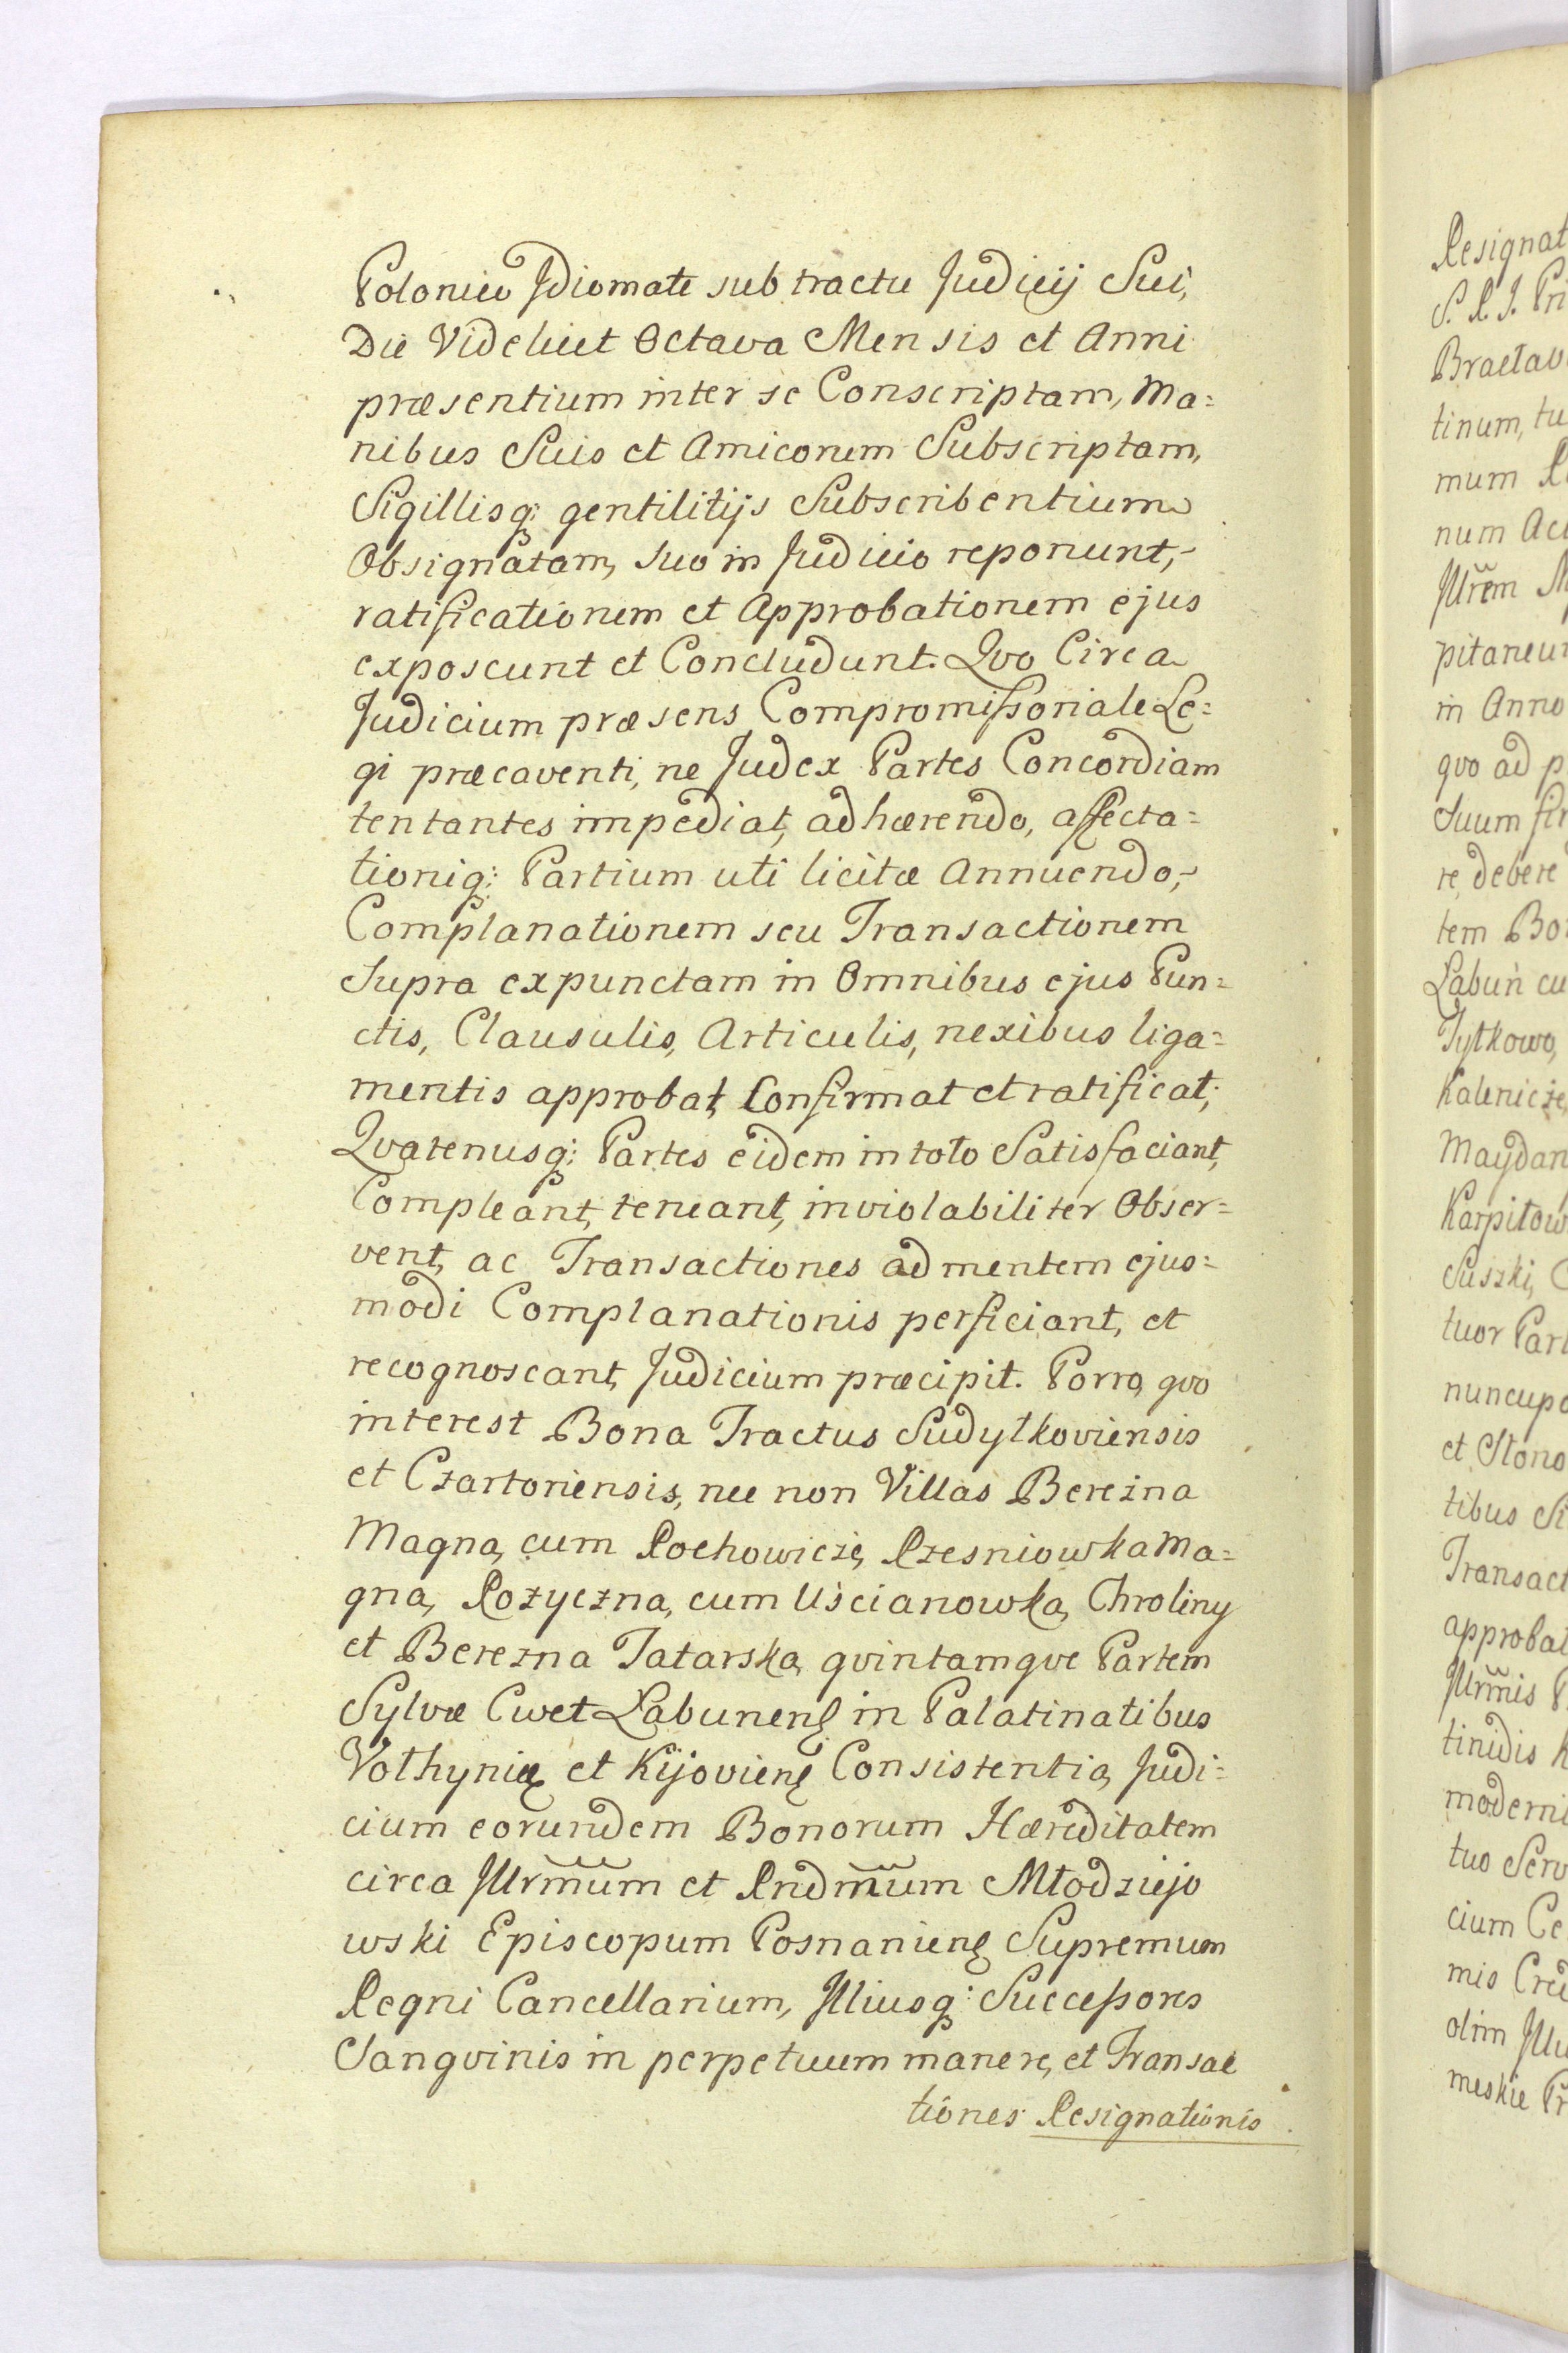 Polonico Jdiomate sub tractu Judicij Sui,
Die Videlicet Octava Mensis et Anni
præsentium inter se Conscriptam, Ma=
nibus Suis et Amicorum Subscriptam,
Sigillisq; gentilitijs Subscribentium
Obsignatam, suo in Judicio reponunt,
ratificationem et Approbationem ejus
exposcunt et Concludunt. Qvo Circa
Judicium præsens Compromissoriale Le=
gi præcaventi, ne Judex Partes Concordiam
tentantes impediat, adhærendo, affecta=
tioniq; Partium uti licitæ Annuendo,
Complanationem seu Transactionem
Supra expunctam in Omnibus ejus Pun=
ctis, Clausulis, Articulis, nexibus liga=
mentis approbat, Confirmat et ratificat;
Qvatenusq; Partes eidem in toto Satisfaciant,
Compleant, teneant, inviolabiliter Obser=
vent, ac Transactiones ad mentem ejus=
modi Complanationis perficiant, et
recognoscant, Judicium præcipit. Porro, qvo
interest Bona Tractus Sudyłkoviensis
et Czartoriensis, nec non Villas Bereżna
Magna, cum Rochowicze, Rzesniowka Ma=
gna, Rożyczna, cum Uścianowka, Chroliny
et Berezna Tatarska, qvintamqve Partem
Sylvæ Cwet Łabunenę in Palatinatibus
Vołhyniæ et Kijovienę Consistentia, Judi=
cium eorundem Bonorum Hæreditatem
circa Jllrm̃um et Rndm̃um Młodziejo
wski Episcopum Posnanienę Supremum
Regni Cancellarium, Jlliusq; Successores
Sangvinis in perpetuum manere, et Transac
tiones Resignationis
Resignat
S. R. J. Pri
Bracłav
tinum, tu
mum R
num Ac
Jllrẽm M
pitaneu
in Anno
qvo ad p
Suum fir
re, debere
tem Bo
Łabuń cu
Tytkowo,
Kalenicze,
Maydan
Karpiłow
Suszki, C
tuor Part
nuncupa
et Słono
tibus Si
Transact
approbat
Jllrm̃is P
tinidis K
moderni
tuo Serv
cium Ce
mis Cred
olim Jllu
meskie Pr